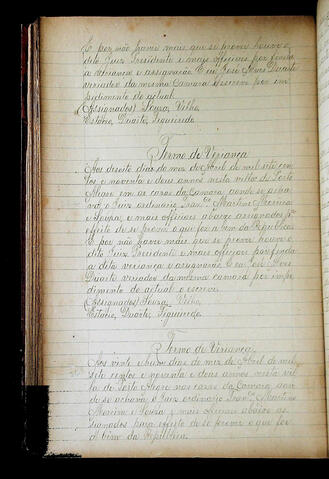 E por não haver mais que se prover houve o
dito Juiz Presidente e mais officiaes por finda
a vereança e assignarão E eu José Alves Duarte
vereador da mesma Camara escrevi por im
pedimento do actual.
(Assignados) Souza, Velho,
Estacio, Duarte, Figueiredo.
Termo de Veriança
Aos desoito dias do mez de Abril de mil sete cen
tos e noventa e dous annos nesta villa de Porto
Alegre em as casas da Camara aonde se acha
va o Juiz ordinario Martins Moreira
e Souza, e mais officiaes abaixo assignados pª
effeito de se prover o que for a bem da Republica
E por não haver mais que se prover houve o
dito Juiz Presidente e mais officiaes por finda
a dita veriança e assignarão E eu José Alves
Duarte vereador da mesma camara por impe
dimento do actual o escrevi.
(Assignados) Souza, Velho,
Estacio, Duarte, Figueiredo.
Termo de Veriança
Aos vinte e hum dias do mez de Abril de mil
sete centos e noventa e dous annos nesta vil
la de Porto Alegre nas casas da Camara, aon
de se achava o Juiz ordinario Martins
Moreira e Souza e mais abaixo as
signados para effeito de se prover o que for
a bem da Republica.